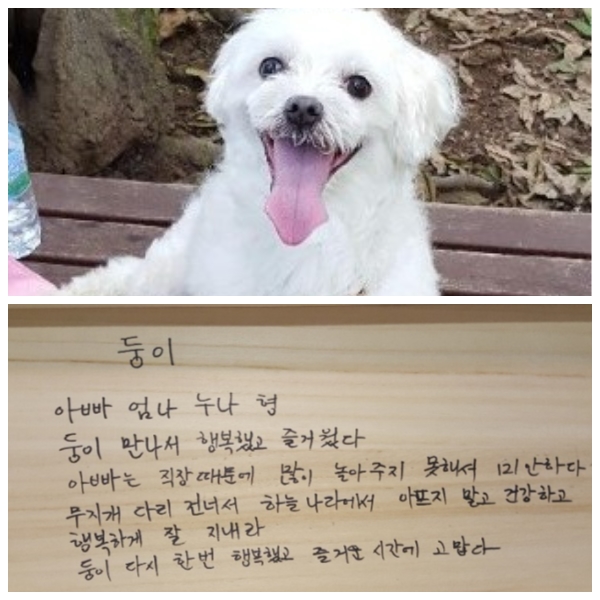 둥이
아빠 엄나 누나 형
둥이 만나서 행복했고 즐거웠다
아빠는 직장때문에 많이 놀아주지 못해서 미안하다
무지개 다리 건너서 하늘나라에서 아프지 말고 건강하고
행복하게 잘 지내라
둥이 다시 한번 행복했고 즐거운 시간에 고맙다